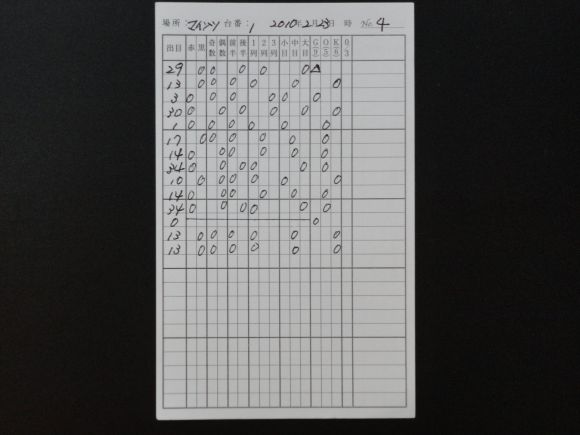 場所: 台番:1 2010年2月23日 時 No.4
出目 赤 黒 奇数 偶数 前半 後半 1列 2列 3列 小目 中目 大目 G⑨ O⑤ K⑧ 0.3
29 0 0 0 0 0 △
13 0 0 0 0 0 0
3 0 0 0 0 0 0
30 0 0 0 0 0 0
1 0 0 0 0 0 0
17 0 0 0 0 0 0
14 0 0 0 0 0 0
34 0 0 0 0 0 0
10 0 0 0 0 0 0
14 0 0 0 0 0 0
34 0 0 0 0 0 0
0 0
13 0 0 0 0 0 0
13 0 0 0 0 0 0